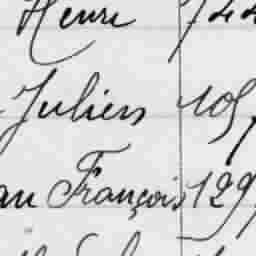 Henri 744
Julien 105
an François 129